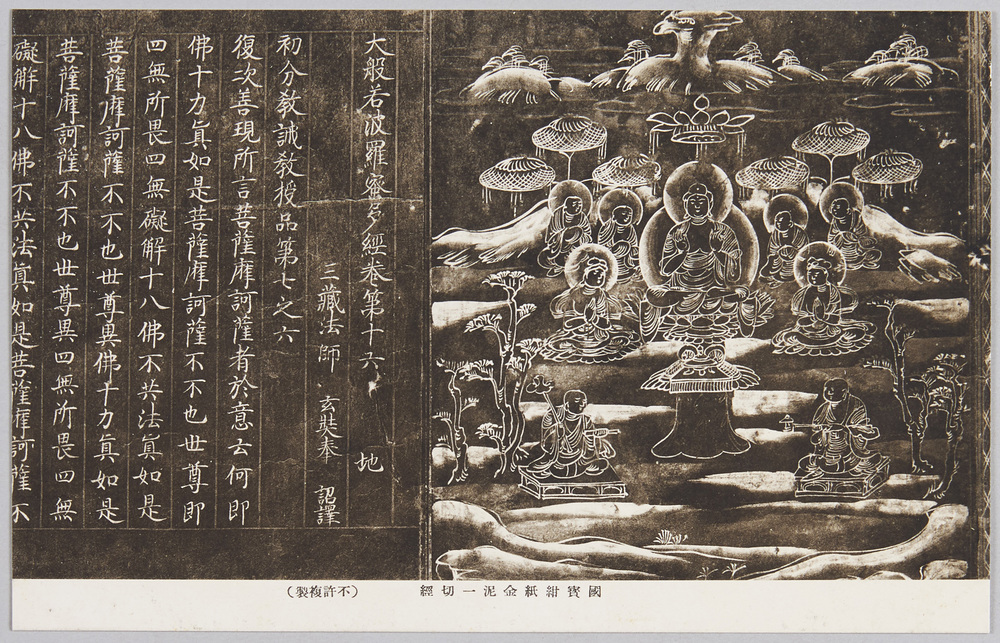 大般若波羅蜜多經卷第十六 地
三藏法師 玄奘奉 詔譯
初分教誡教授品第七之六
復次善現所言菩薩摩訶薩者於意云何即
佛十力真如是菩薩摩訶薩不不也世尊即
四無所畏四無礙解十八佛不共法真如是
菩薩摩訶薩不不也世尊異佛十力真如是
菩薩摩訶薩不不也世尊異四無所畏四無
礙解十八佛不共法真如是菩薩摩訶薩不
國寳紺紙金泥一切經
(不許複製)